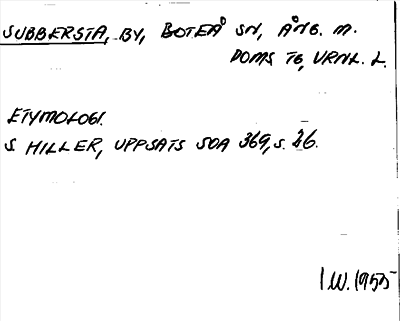 SUBBERSTA, BY, BOTEÅ SN, ÅNG. M.
DOMS TG, VRNL. L.
ETYMOLOGI.
S HILLER, UPPSATS SOA 369, S. 26.
I.W. 1955